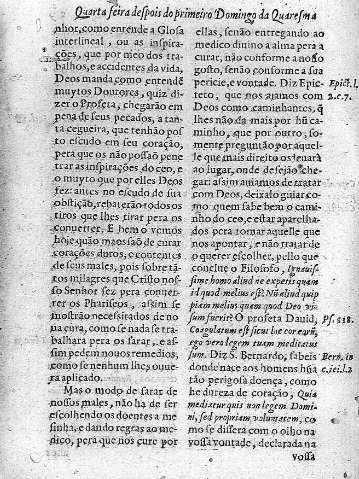 Quarta feira despois do primeiro Domingo da Quaresma
nhor, como entende a Glosa
interlineal, ou as inspira-
ções, que por meo dos tra-
balhos, e accidentes da vida,
Deos manda como entendẽ
muytos Doutores, quiz di-
zer o Profeta, chegarão em
pena de seus pecados, a tan-
ta cegueira, que tenhão pos-
to escudo em seu coração,
pera que os não possão pene
trar as inspirações do ceo, e
o muyto que por elles Deos
fez: antes no escudo de sua
obstinação, rebaterão todos os
tiros que lhes tirar pera os
conuerter. E bem o vemos
hoje quão maos são de curar
corações duros, e contentes
de seus males, pois sobre tã-
tos milagres que Cristo nos-
so Senhor fez pera conuer-
ter os Phariseos, assim se
mostrão necessitados de no
ua cura, como se nada se tra-
balhara pera os sarar, e as-
sim pedem nouos remedios,
como se nenhum lhes ouue-
ra aplicado.
Mas o modo de sarar de
nossos males, não ha de ser
escolhendo os doentes a me
sinha, e dando regras ao me-
dico, pera que nos cure por
ellas, senão entregando ao
medico diuino a alma pera a
curar, não conforme a nosso
gosto, senão conforme a sua
pericie, e vontade. Diz Epic-
teto, que nos ajamos com
Deos como caminhantes, q̃
lhes não da mais por hũ ca-
minho, que por outro, so-
mente preguntão por aquel-
le que mais direito os leuará
ao lugar, onde desejão che-
gar: assim auiamos de tratar
com Deos, deixalo guiar co-
mo quem sabe bem o cami-
nho do ceo, e estar aparelha-
dos pera tomar aquelle que
nos apontar, e não tratar de
o querer escolher, pello que
conclue o Filosofo, Ignauis-
sime homo aliud ne expetis quam
id quod melius est? Nũ aliud quip
piam melius quam quod Deo vi-
sum fuerit? O profeta Dauid,
Coagulatum est sicut lac cor eorũ,
ego vero legem tuam meditatus
sum. Diz S. Bernardo, sabeis
donde nace aos homens hũa
tão perigosa doença, como
he dureza de coração, Quia
meditatur quis non legem Domi-
ni, sed propriam voluntatem, co
mo se dissera com o olho na
vossa vontade, declarada na
vossa
Epict. l.
2. c. 7.
Ps. 118.
Bern. in